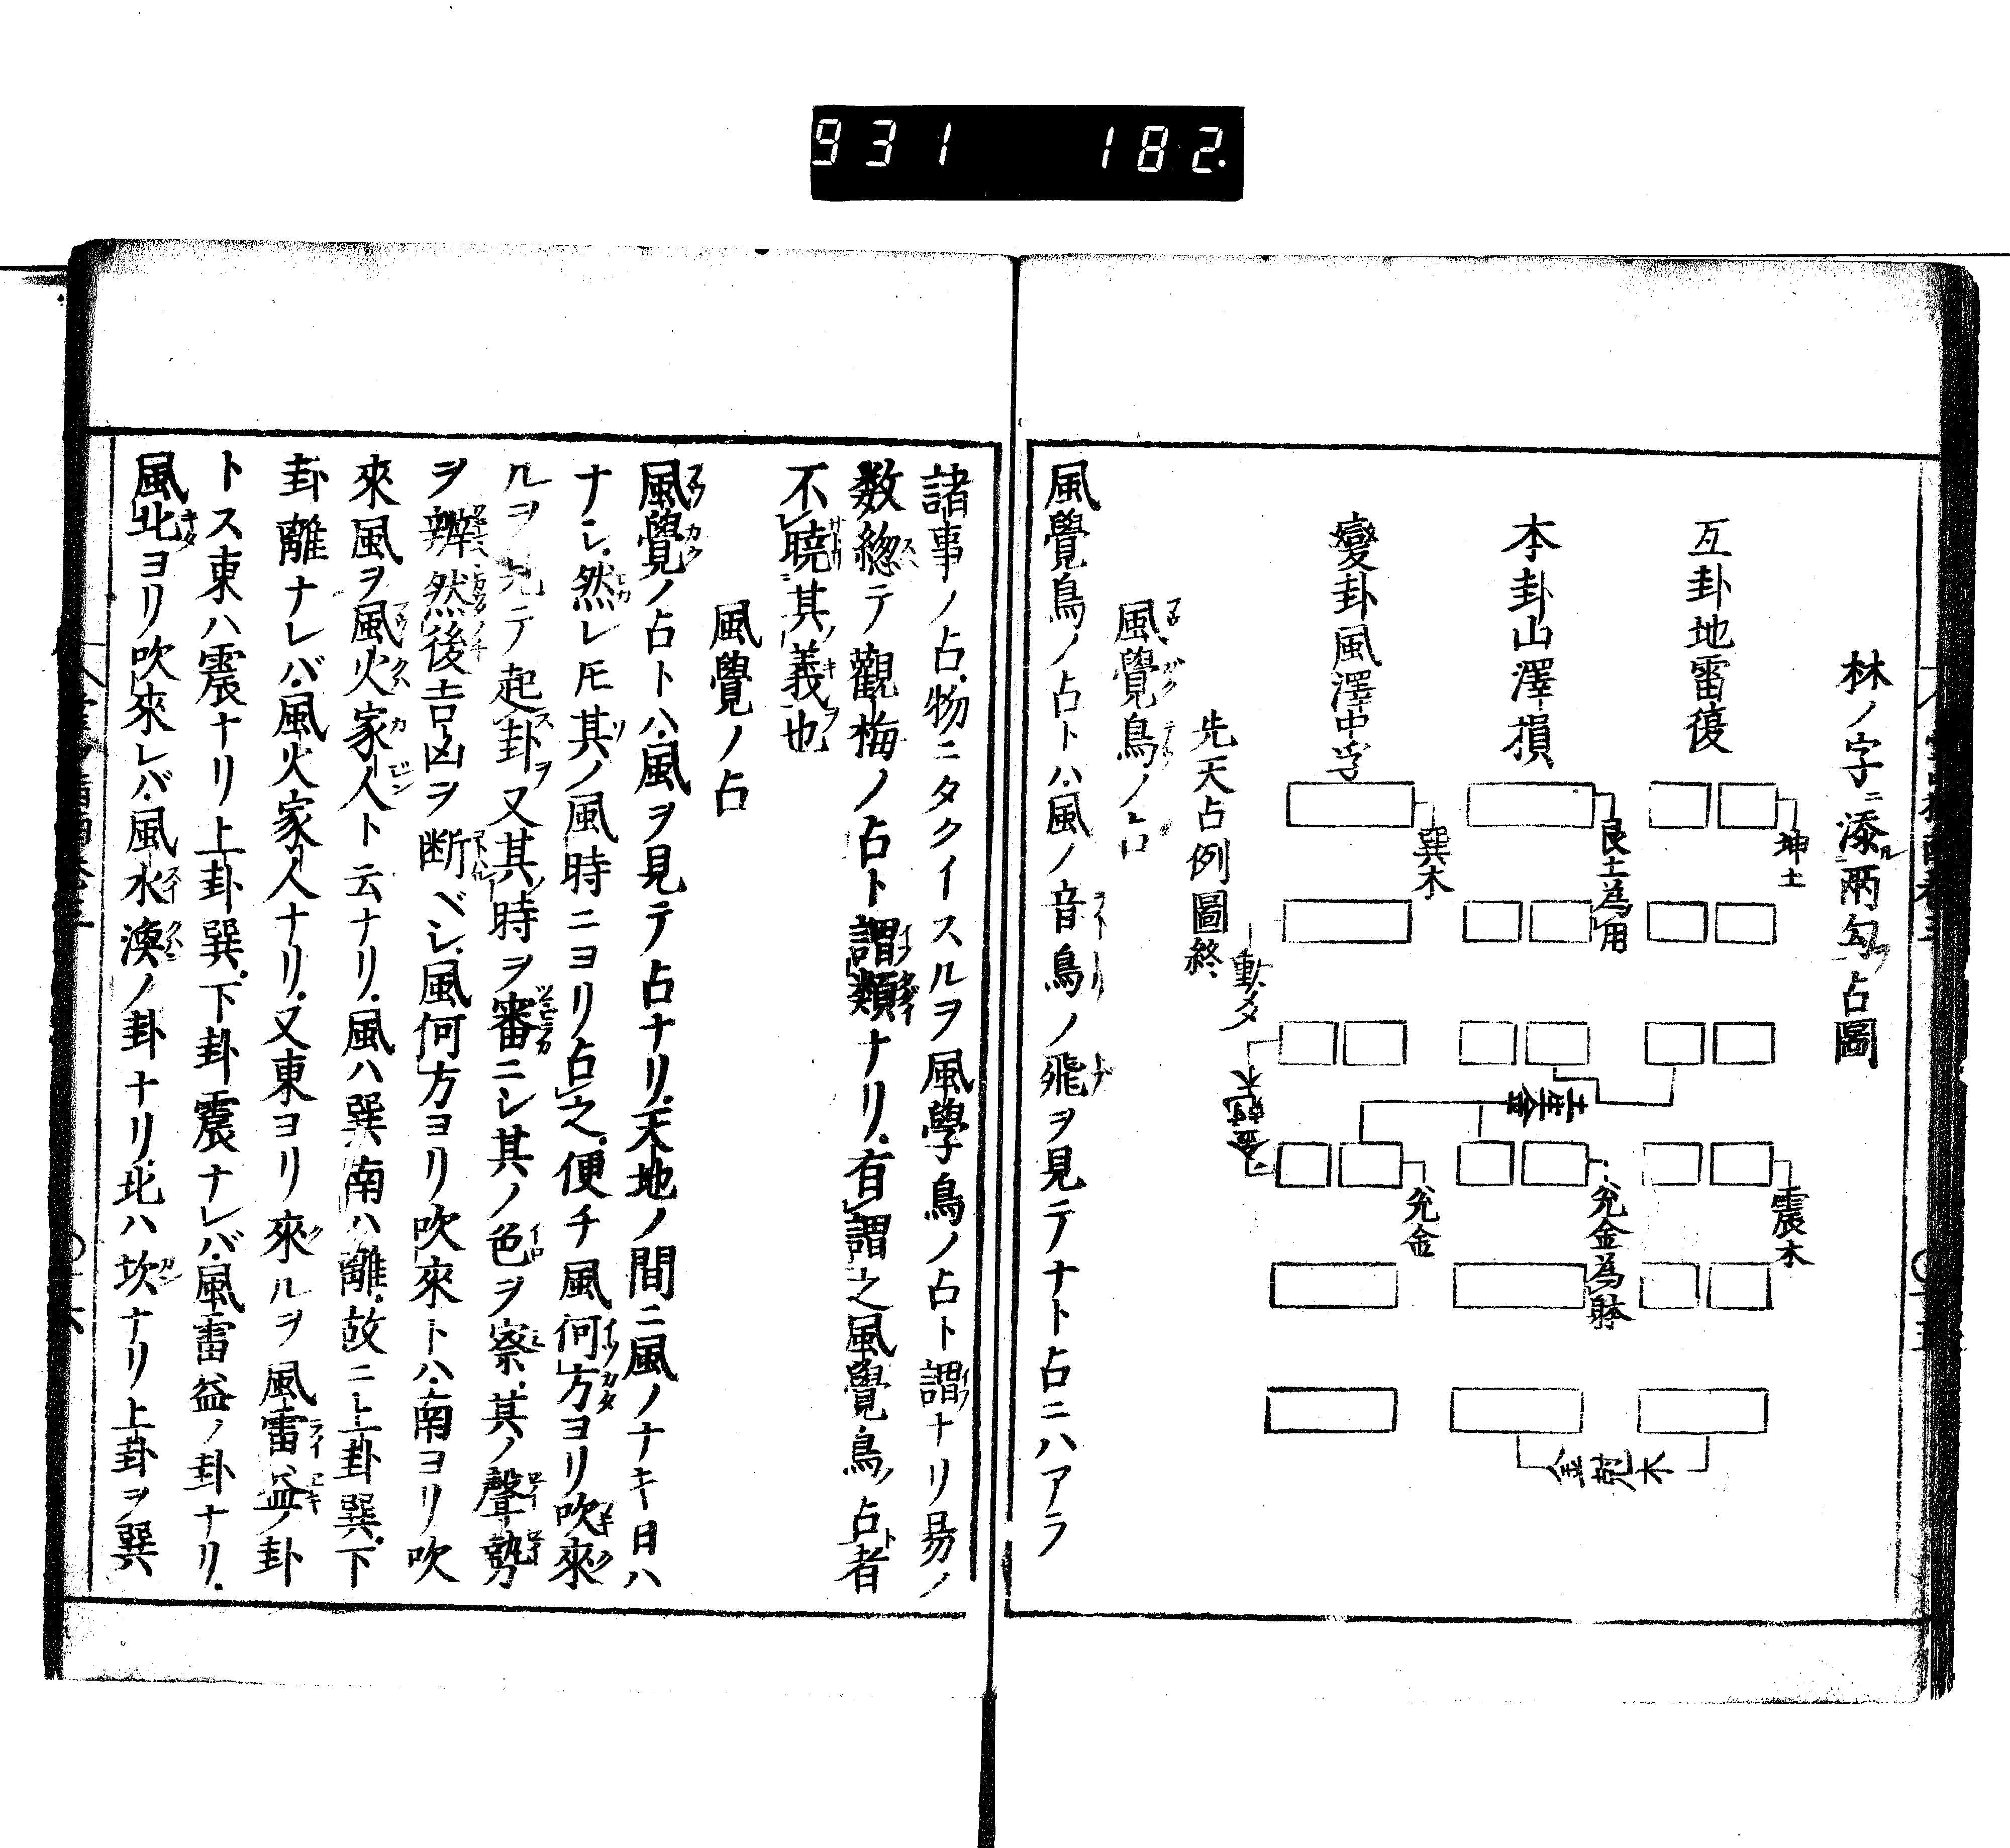 931 182.
林ノ字ニ添ル両勾ヲ占圖
互卦地雷復
坤土
震木
本卦山澤損
艮土為用
兌金為躰
變卦風澤中孚
巽木
兌金
土生金
金剋木
動爻
金剋木
先天占例圖終
風覺鳥ノ占
風覺鳥ノ占トハ風ノ音鳥ノ飛ヲ見テナト占ニハアラ
諸事ノ占物ニタクイスルヲ風學鳥ノ占ト謂ナリ易ノ
数緫テ觀梅ノ占ト謂類ナリ有謂之風覺鳥ノ占者
不曉其義也
風覺ノ占
風覺ノ占トハ風ヲ見テ占ナリ天地ノ間ニ風ノナキ日ハ
ナシ然レ𪜈其ノ風時ニヨリ占之便チ風何方ヨリ吹來
ルヲ見テ起卦又其時ヲ審ニシ其ノ色ヲ察其ノ聲勢
ヲ辨然後吉凶ヲ断ベシ風何方ヨリ吹來トハ南ヨリ吹
來風ヲ風火家人ト云ナリ風ハ巽南ハ離故ニ上卦巽下
卦離ナレバ風火家人ナリ又東ヨリ來ルヲ風雷益ノ卦
トス東ハ震ナリ上卦巽下卦震ナレバ風雷益ノ卦ナリ
風北ヨリ吹來レバ風水渙ノ卦ナリ北ハ坎ナリ上卦ヲ巽